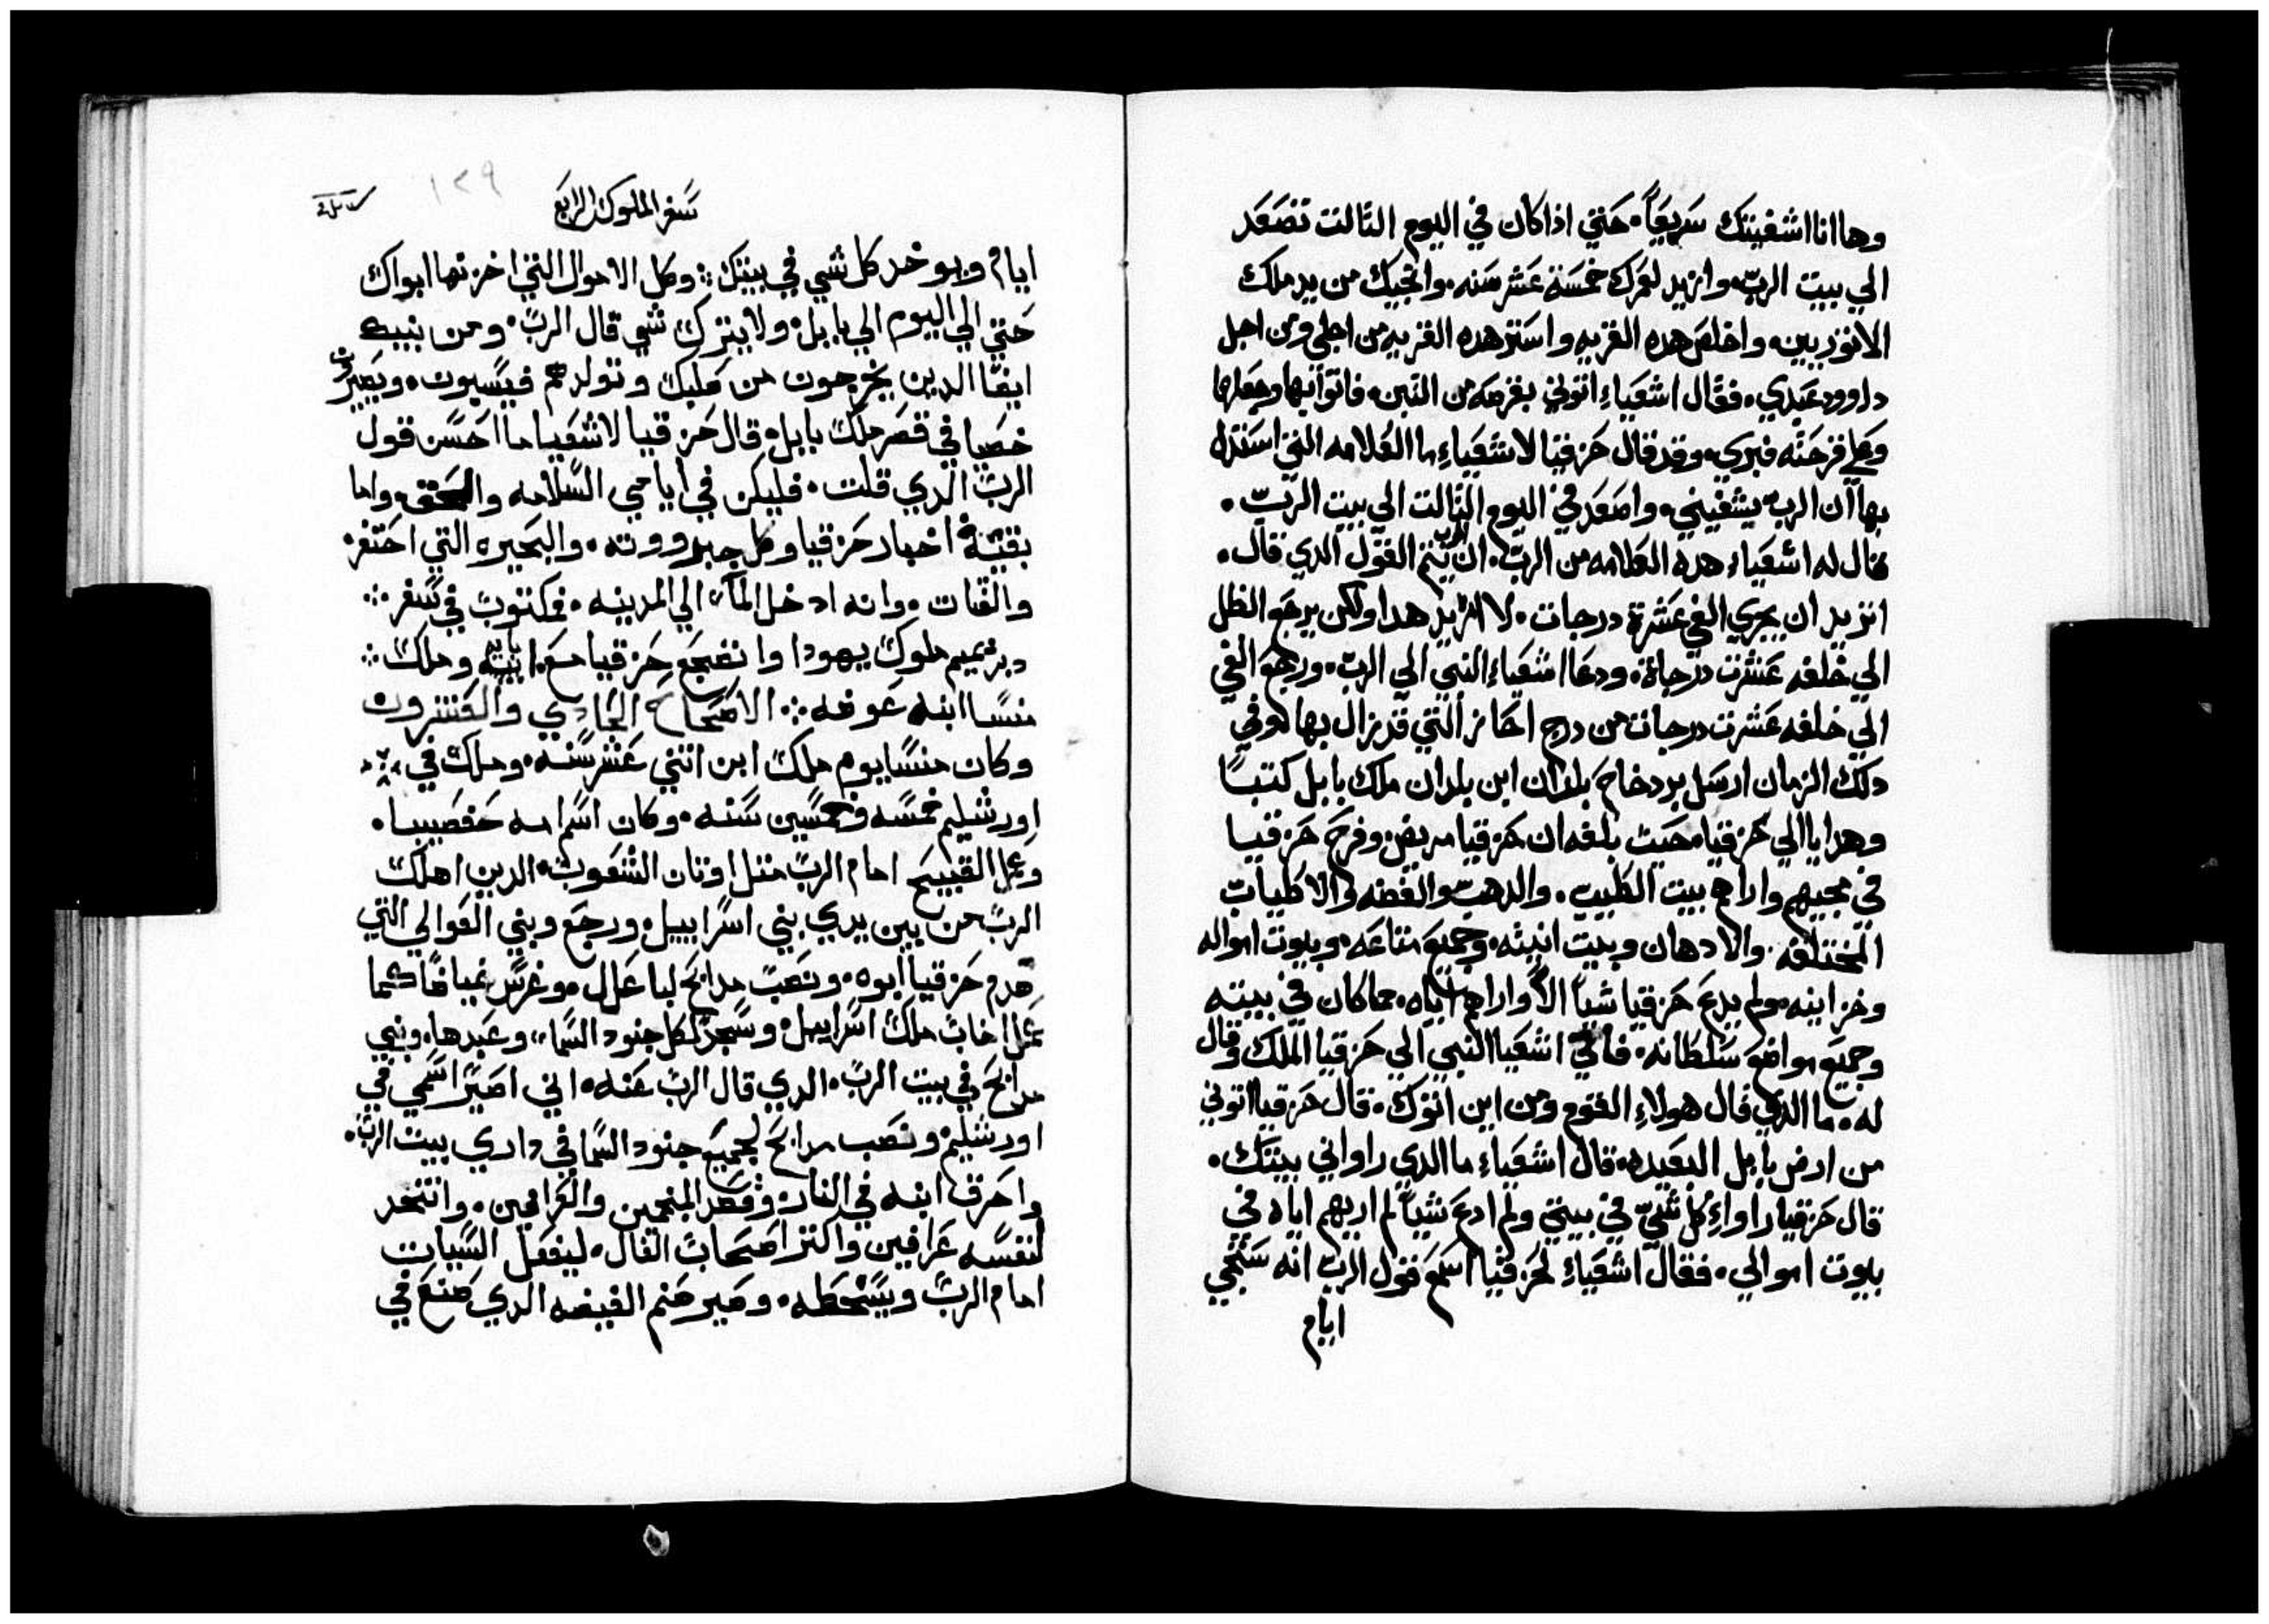 وها انا اشفيتك سريعاً. حتي اذا كان في اليوم التالت تصعد
الي بيت الرب. وازيد لعمرك خمسة عشر سنه. وانجيك من يد ملك
الاتوريين. واخلص هده القريه واستر هده القريه من اجلي ومن اجل
داوود عبدي. فقال اشعياء اتوني بقرصه من التين. فاتوا بها وجعلوها
وعلي قرحته فبري. وقد قال حزقيا لاشعياء ما العلامه التي استدل
بها ان الرب يشفيني. واصعد في اليوم التالت الي بيت الرب.
قال له اشعياء هده العلامه من الرب. ان الرب يتم القول الدي قال.
اتريد ان يجري الفي عشرة درجات. لا اريد هدا ولكن يرجع الظل
الي خلفه عشرت درجاة. ودعا اشعياء النبي الي الرب. ورجع الفي
الي خلفه عشرت درجات من درج احاز التي قد نزال بها. وفي
دلك الزمان ارسل بردخاخ بلدان ابن بلدان ملك بابل كتباً
وهدايا الي حزقيا. حيت بلغه ان حزقيا مريض. وفرح حزقيا
في مجيهم واراهم بيت الطيب. والدهب والفضه والاطيات
المختلفه. والادهان وبيت انيته. وجميع متاعه. وبيوت امواله
وخزاينه. ولم يدع حزقيا شياً الا واراهم اياه. مما كان في بيته
وجميع مواضع سلطانه. فاتي اشعيا النبي الي حزقيا الملك وقال
له. ما الدي قال هولاء القوم ومن اين اتوك. قال حزقيا اتوني
من ارض بابل البعيده. قال اشعياء ما الدي راوا في بيتك.
قال حزقيا راواء كل شي في بيتي ولم ادع شياً لم اريهم اياه في
بيوت اموالي. فقال اشعياء لحزقيا اسمع قول الرب انه ستجي
ايام
سفر الملوك الرابع
١٢٩
ايام ويوخد كل شي في بيتك: وكل الاموال التي اخزنها ابواك
حتي الي اليوم الي بابل. ولا يترك شي قال الرب. ومن بنيك
ايضا الدين يخرجون من صلبك وتولدهم فيسبون. ويصيرون
خصيا في قصر ملك بابل. قال حزقيا لاشعيا ما احسن قول
الرب الدي قلت. فليكن في ايامي السلامه والحق. واما
بقية اخبار حزقيا وكل جبروته. والبحيره التي احتفر.
والقنات. وانه ادخل الما الي المدينه. فمكتوب في سفر
دبرنميم ملوك يهودا واضجع حزقيا مع ابايه وملك
منسا ابنه عوضه. الاصحاح الحادي والعشرون
وكان منسا يوم ملك ابن اتني عشر سنه. وملك في
اورشليم خمسه وخمسين سنه. وكان اسم امه حفصيبا.
وعمل القبيح امام الرب متل اوتان الشعوب. الدين اهلك
الرب من بين يدي بني اسراييل. ورجع وبني العوالي التي
هدم حزقيا ابوه. ونصب مدابح لباعال. وغرس غياضا كما
عمل اخاب ملك اسراييل. وسجد لكل جنود السما. وعبدها. وبني
مدابح في بيت الرب. الدي قال الرب عنه. اني اصير اسمي في
اورشليم. ونصب مدابح لجميع جنود السما في داري بيت الرب.
واحرق ابنه في النار. وقصد المنجمين والعرافين. واتخد
لنفسه عرافين واكتر اصحاب الفال. ليفعل السيات
امام الرب ويسخطه. وصير صنم الغيضه الدي صنع في